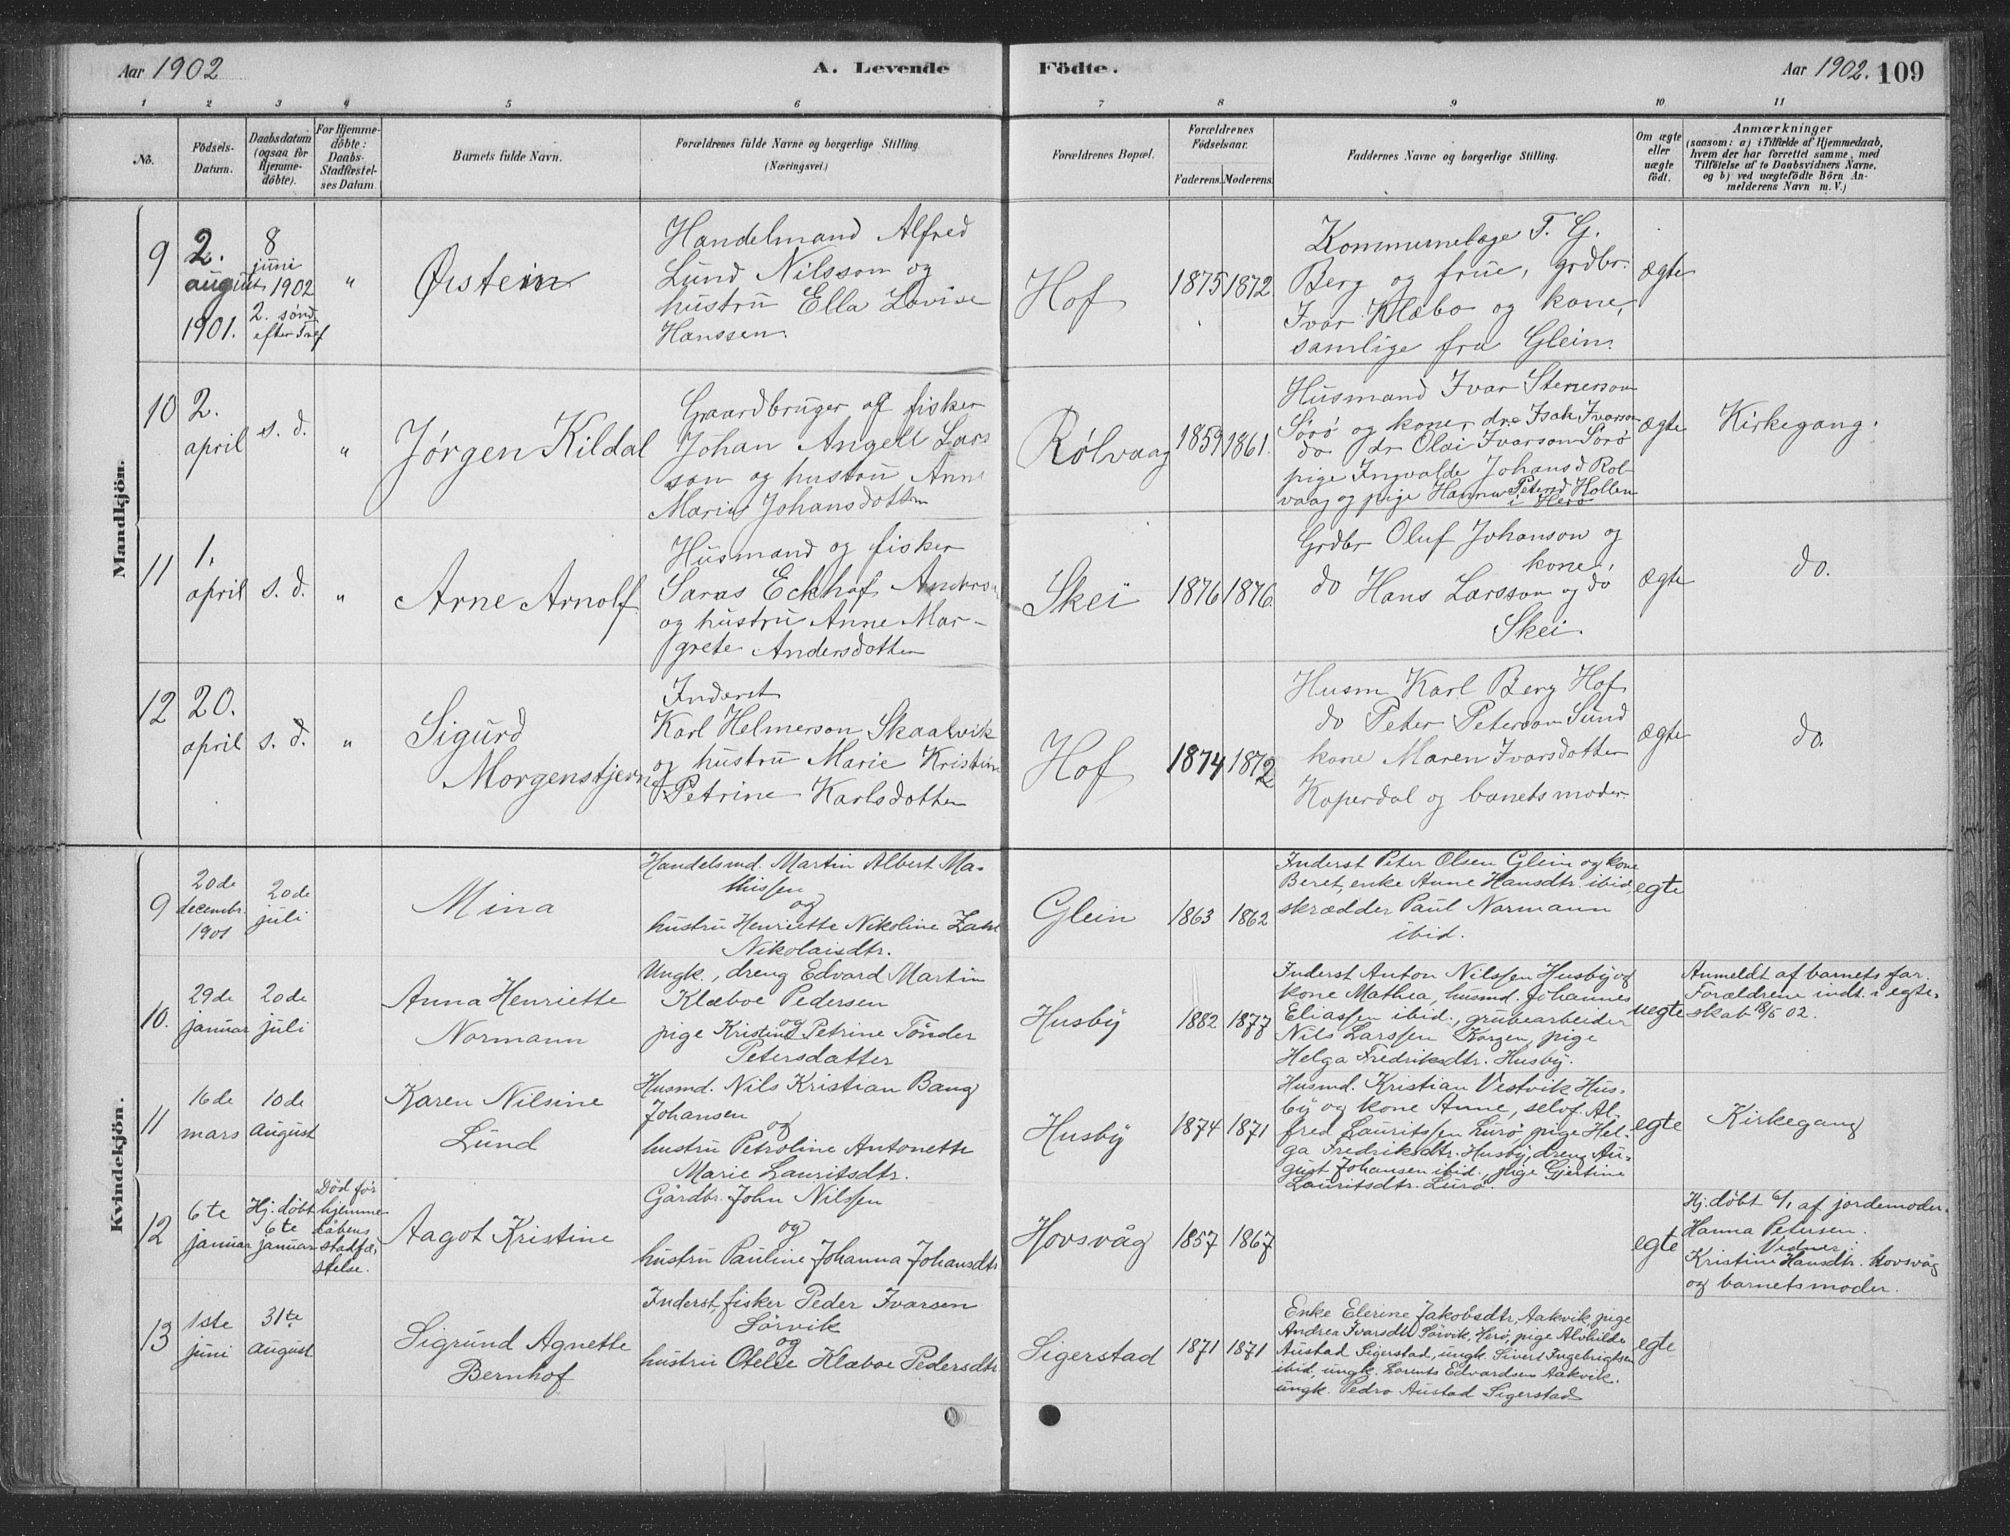 Aar 1902
A. Levende
Födte.
Aar 1902. 109
1 2 3 4 5 6 7 8 9 10 11
No.
Födsels-
Datum.
Daabsdatum
(ogsaa for
Hjemme-
döbte).
For Hjemme-
döbte:
Daabs-
Stadfæstel-
ses Datum.
Barnets fulde Navn.
Forældrenes fulde Navne og borgerlige Stilling
(Næringsvei.)
Forældrenes Bopæl.
Forældrenes
Födselsaar.
Faderens. Moderens.
Faddernes Navne og borgerlige Stilling.
Om ægte
eller
uægte
födt.
Anmærkninger
(saasom: a) i Tilfælde af Hjemmedaab,
hvem der har forrettet samme, med
Tilföielse af to Daabsvidners Navne,
og b) ved uægtefödte Börn An-
melderens Navn m. V.)
Mandkjön.
9
2.
august
1901.
8
juni
1902
2. sönd.
efter Tref
"
Øistein
Handelmand Alfred
Lund Nilsson og
hustru Ella Lovise
Hanssen.
Hof
1875 1872
Kommunelæge F. G.
Berg og frue, grdbr.
Ivar Klæbo og kone,
samlige fra Glein.
ægte
10
2.
april
s. d.
"
Jørgen Kildal
Gaardbruger og fisker
Johan Angell Lars
son og hustru Anne
Marie Johansdotter
Rølvaag
1859 1861.
Husmand Ivar Stenerson
Sörö og kone, dre Isak Ivarson
do dr Olai Ivarson Sörö
pige Ingvalde Johansd Röl-
vaag og pige Hanna Petersd Hollen
i Herö
ægte
Kirkegang.
11
1.
april
s. d.
"
Arne Arnolf
Husmand og fisker
Saras Eckhof Anders
og hustru Anne Mar-
grete Andersdotter
Skei
1876 1876.
Grdbr Oluf Johanson og
kone,
do Hans Larsson og do
Skei.
ægte
do.
12
20.
april
s. d.
"
Sigurd
Morgenstjerne
Inderst
Karl Helmerson Skaalvik
og hustru Marie Kristine
Petrine Karlsdotter
Hof
1874 1872
Husm Karl Berg Hof
do Peter Peterson Sund
kone Maren Ivarsdotter
Koperdal og banets moder.
ægte
do.
Kvindekjön.
9
20de
decembr.
1901
20de
juli
Mina
Handelsmd. Martin Albert Ma-
thissen
og
hustru Henriette Nikoline Zahl
Nikolaisdtr.
Glein
1863 1862
Inderst Peter Olsen Glein og kone
Beret, enke Anne Hansdtr. ibid,
skrædder Paul Normann
ibid.
egte
10.
29de
januar
20de
juli
Anna Henriette
Normann
Ungk., dreng Edvard Martin
Klæboe Pedersen
og
pige Kristine Petrine Tönder
Petersdatter
Husby
1882 1877
Inderst Anton Nilssen Husby og
kone Mathea, husmd. Johannes
Eliassen ibid., grubearbeider
Nils Larssen Korgen, pige
Helga Fredriksdtr. Husby.
uegte
Anmeldt af barnets far.
Forældrene indt. i egte-
skab 18/5 02.
11
16de
mars
10de
august
Karen Nilsine
Lund
Husmd. Nils Kristian Bang
Johansen
og
hustru Petroline Antonette
Marie Lauritsdtr.
Husby
1874 1871
Husmd. Kristian Vestvik Hus-
by og kone Anne, selvf. Al-
fred Lauritssen Lurö, pige Hel-
ga Fredriksdtr. Husby, dreng Au-
gust Johansen ibid., pige Gjertine
Lauritsdtr. Lurö.
egte
Kirkegang
12
6te
januar
Hj. döbt
6te
januar
Död för
hjemme
dåbens
stadfæ,
stelse.
Aagot Kristine
Gårdbr. John Nilssen
og
hustru Pauline Johanna Johansdtr
Hovsvåg
1857 1867
egte
Hj. döbt 6/1 af jordemoder
Hanna Petersen.
Vidner:
Kristine Hansdtr. Hovsvåg
og barnets moder.
13
1ste
juni
31te
august
Sigrund Agnette
Bernhof
Inderst, fisker Peder Ivarsen
Sörvik
og
hustru Otelie Klæboe Pedersdtr
Sigerstad
1871 1871
Enke Elerine Jakobsdtr, Aakvik, pige
Andrea Ivarsdtr Sörvik, Herö, pige Alvhilde
Austad Sigerstad, ungk. Sivert Ingebrigtsen
ibid, ungk. Lorents Edvardsen Aakvik.
ungk. Pedro Austad Sigerstad
egte